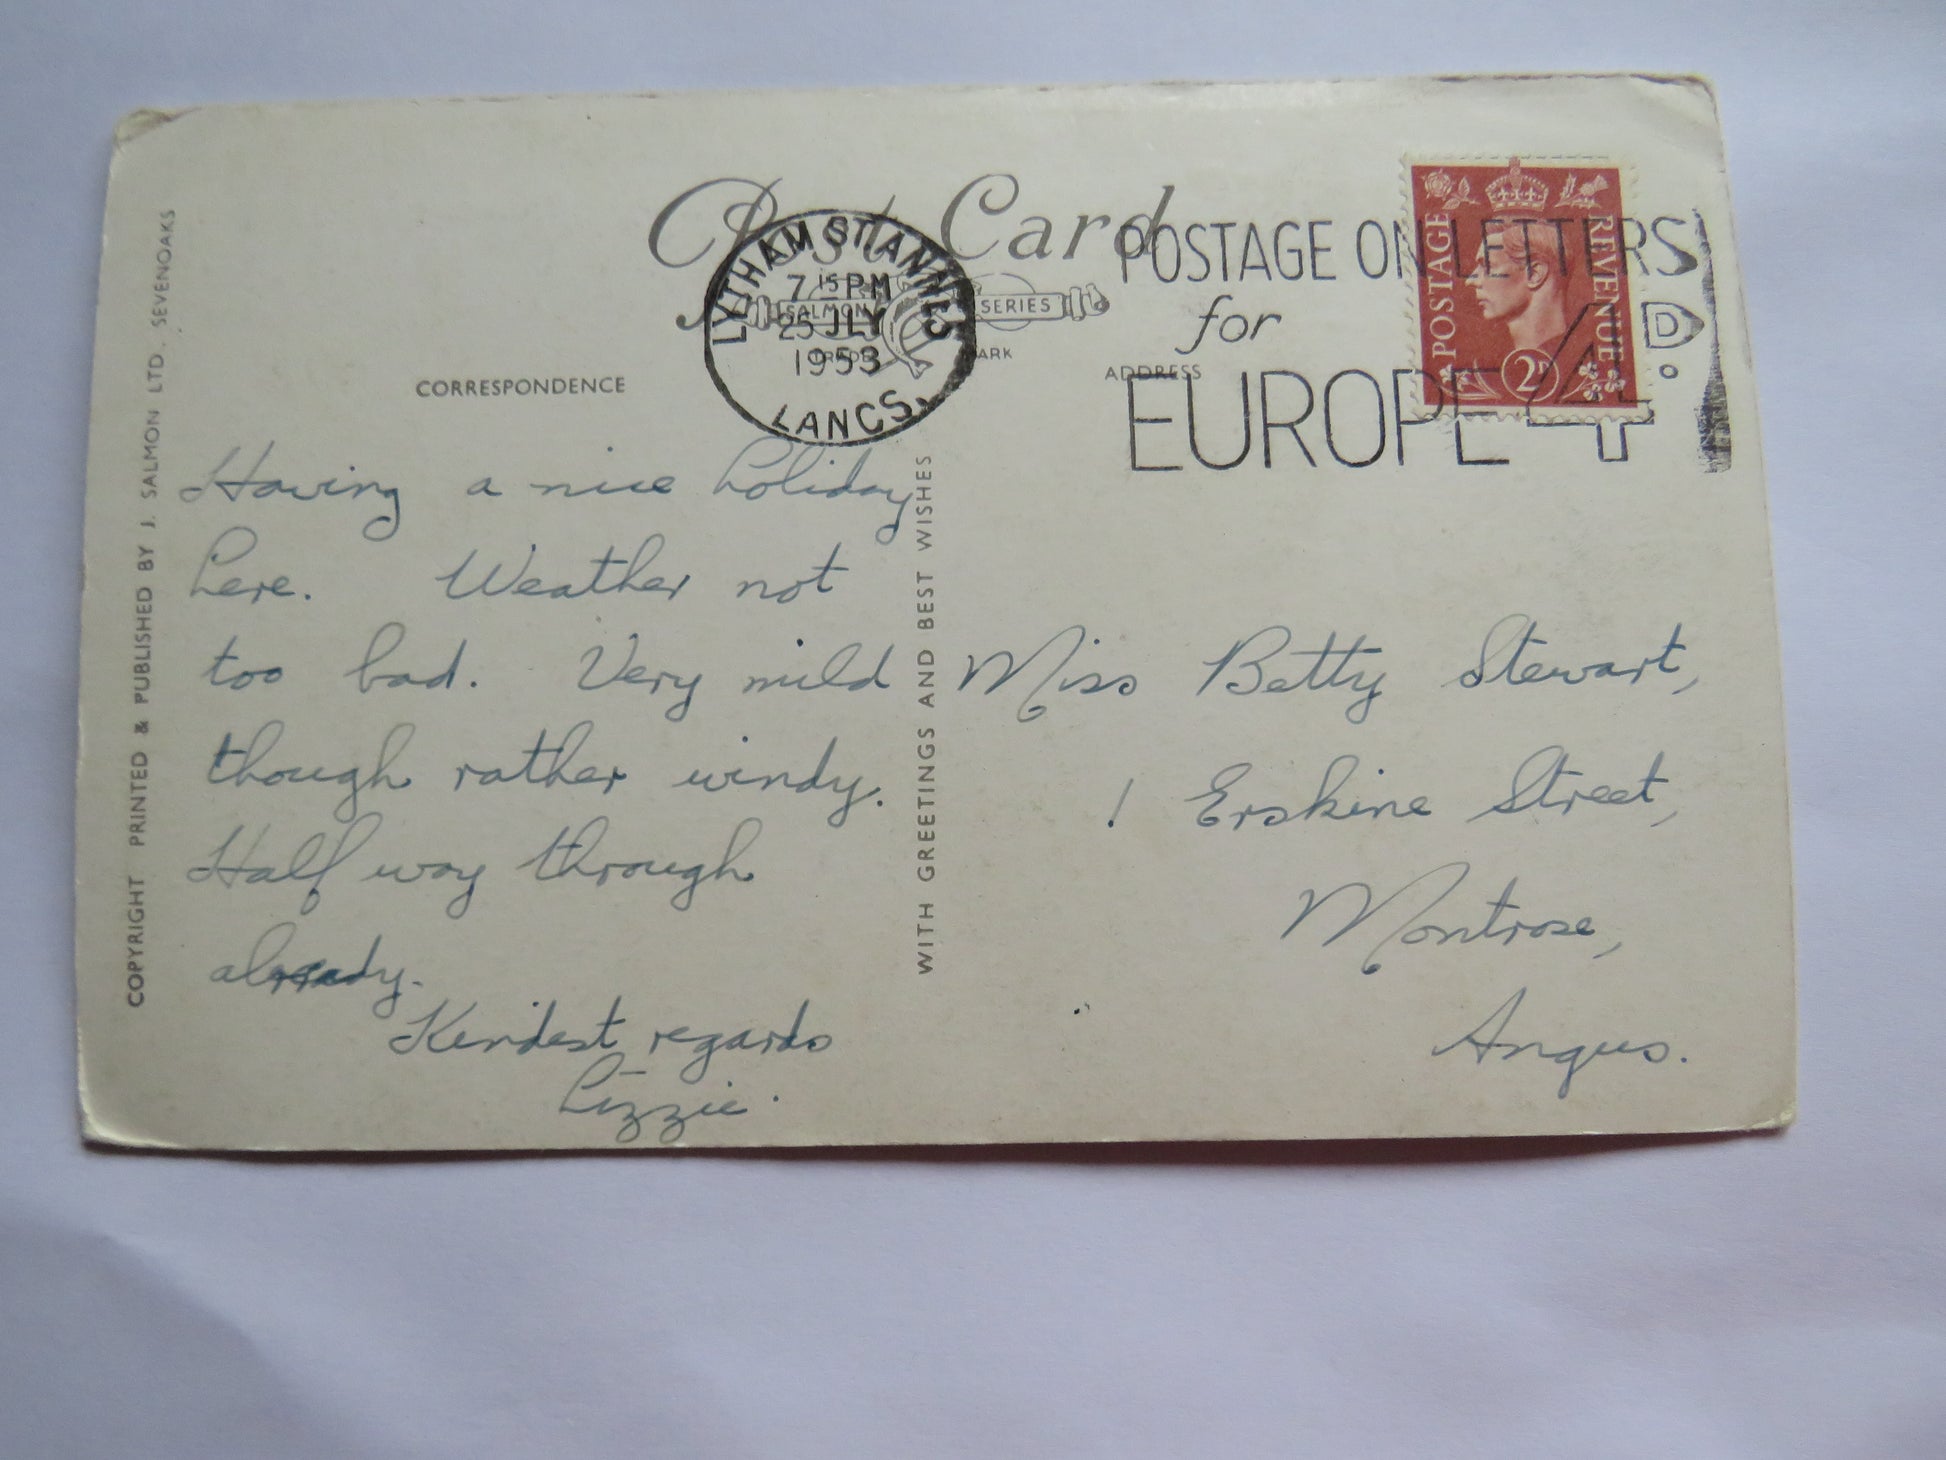 Post Card
SALMON SERIES
TRADE MARK
LYTHAM ST. ANNES
7 15 PM
25 JLY
1953
LANCS.
POSTAGE ON LETTERS
for
EUROPE 4D.
POSTAGE REVENUE
2D
CORRESPONDENCE
ADDRESS
Having a nice holiday
here. Weather not
too bad. Very mild
though rather windy.
Half way through
already.
Kindest regards
Lizzie.
Miss Betty Stewart,
1 Erskine Street,
Montrose,
Angus.
WITH GREETINGS AND BEST WISHES
COPYRIGHT PRINTED & PUBLISHED BY J. SALMON LTD., SEVENOAKS